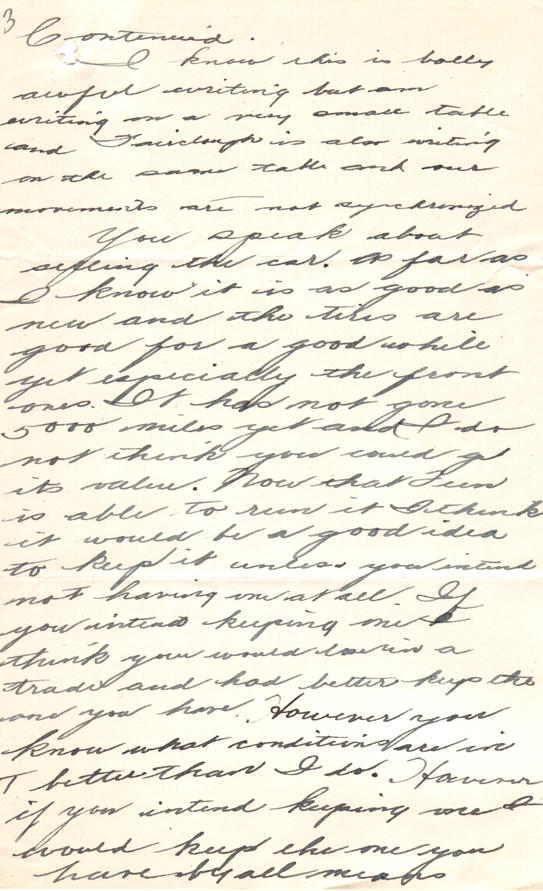 3
Contenued.
I know this is bally
awful writing but am
writing on a very small table
and Fairclough is also writing
on the same table and our
movements are not synchronized
You speak about
selling the car. As far as
I know it is as good as
new and the tires are
good for a good while
yet especially the front
ones. It has not gone
5000 miles yet and I do
not think you could get
its value. Now that
is able to run it I think
it would be a good idea
to keep it unless you intend
not having one at all If
you intend keeping one I
think you would lose in a
trade and had better keep the
one you have. However you
know what conditions are in
T better than I do. However
if you intend keeping one I
would keep the one you
have by all means